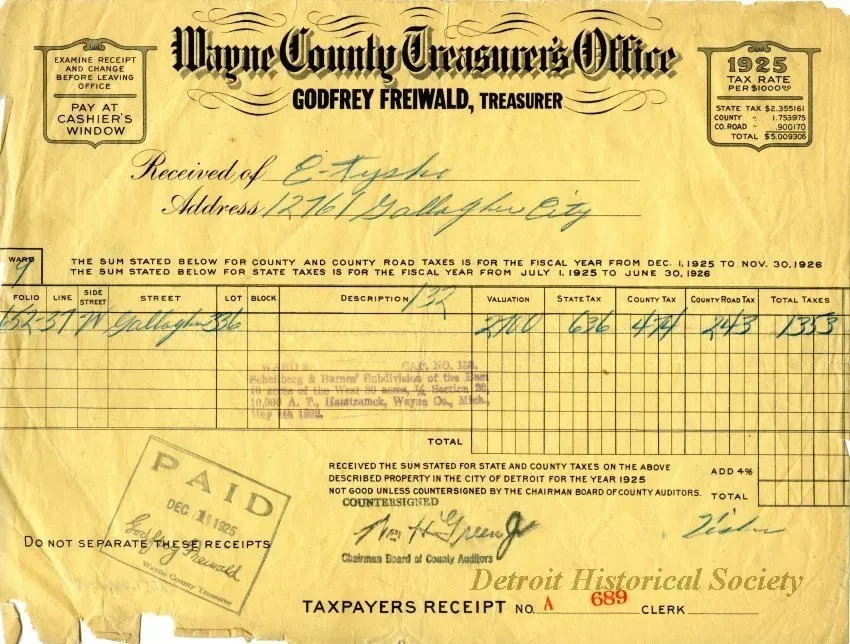 Wayne County Treasurer's Office
GODFREY FREIWALD, TREASURER
EXAMINE RECEIPT
AND CHANGE
BEFORE LEAVING
OFFICE
PAY AT
CASHIER'S
WINDOW
1925
TAX RATE
PER $1000.00
STATE TAX $2.355161
COUNTY " 1.753975
CO. ROAD " .900170
TOTAL $5.009306
Received of E-
Address 12761 Gallagher City
WARD 9
THE SUM STATED BELOW FOR COUNTY AND COUNTY ROAD TAXES IS FOR THE FISCAL YEAR FROM DEC. 1, 1925 TO NOV. 30, 1926
THE SUM STATED BELOW FOR STATE TAXES IS FOR THE FISCAL YEAR FROM JULY 1, 1925 TO JUNE 30, 1926
FOLIO LINE SIDE STREET STREET LOT BLOCK DESCRIPTION 132 VALUATION STATE TAX COUNTY TAX COUNTY ROAD TAX TOTAL TAXES
652-37 W Gallagher 336 2700 636 474 243 1353
WARD 9 CAP. NO. 132.
& Barnes' Subdivision of the East
10 acres of the West 80 acres, ¼ Section 20,
10,000 A. T., Hamtramck, Wayne Co., Mich.,
TOTAL
RECEIVED THE SUM STATED FOR STATE AND COUNTY TAXES ON THE ABOVE
DESCRIBED PROPERTY IN THE CITY OF DETROIT FOR THE YEAR 1925
NOT GOOD UNLESS COUNTERSIGNED BY THE CHAIRMAN BOARD OF COUNTY AUDITORS.
ADD 4%
TOTAL
COUNTERSIGNED
Wm H Green Jr
Chairman Board of County Auditors
PAID
DEC 1925
Godfrey Freiwald
Wayne County Treasurer
DO NOT SEPARATE THESE RECEIPTS
Detroit Historical Society
TAXPAYERS RECEIPT NO. A 689 CLERK